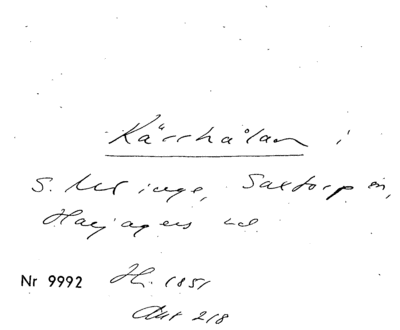 Kärrhålan i
S. Möinge, Saxtorp sn,
Harjagers hd.
Nr 9992 Hi. 1851
Akt 218